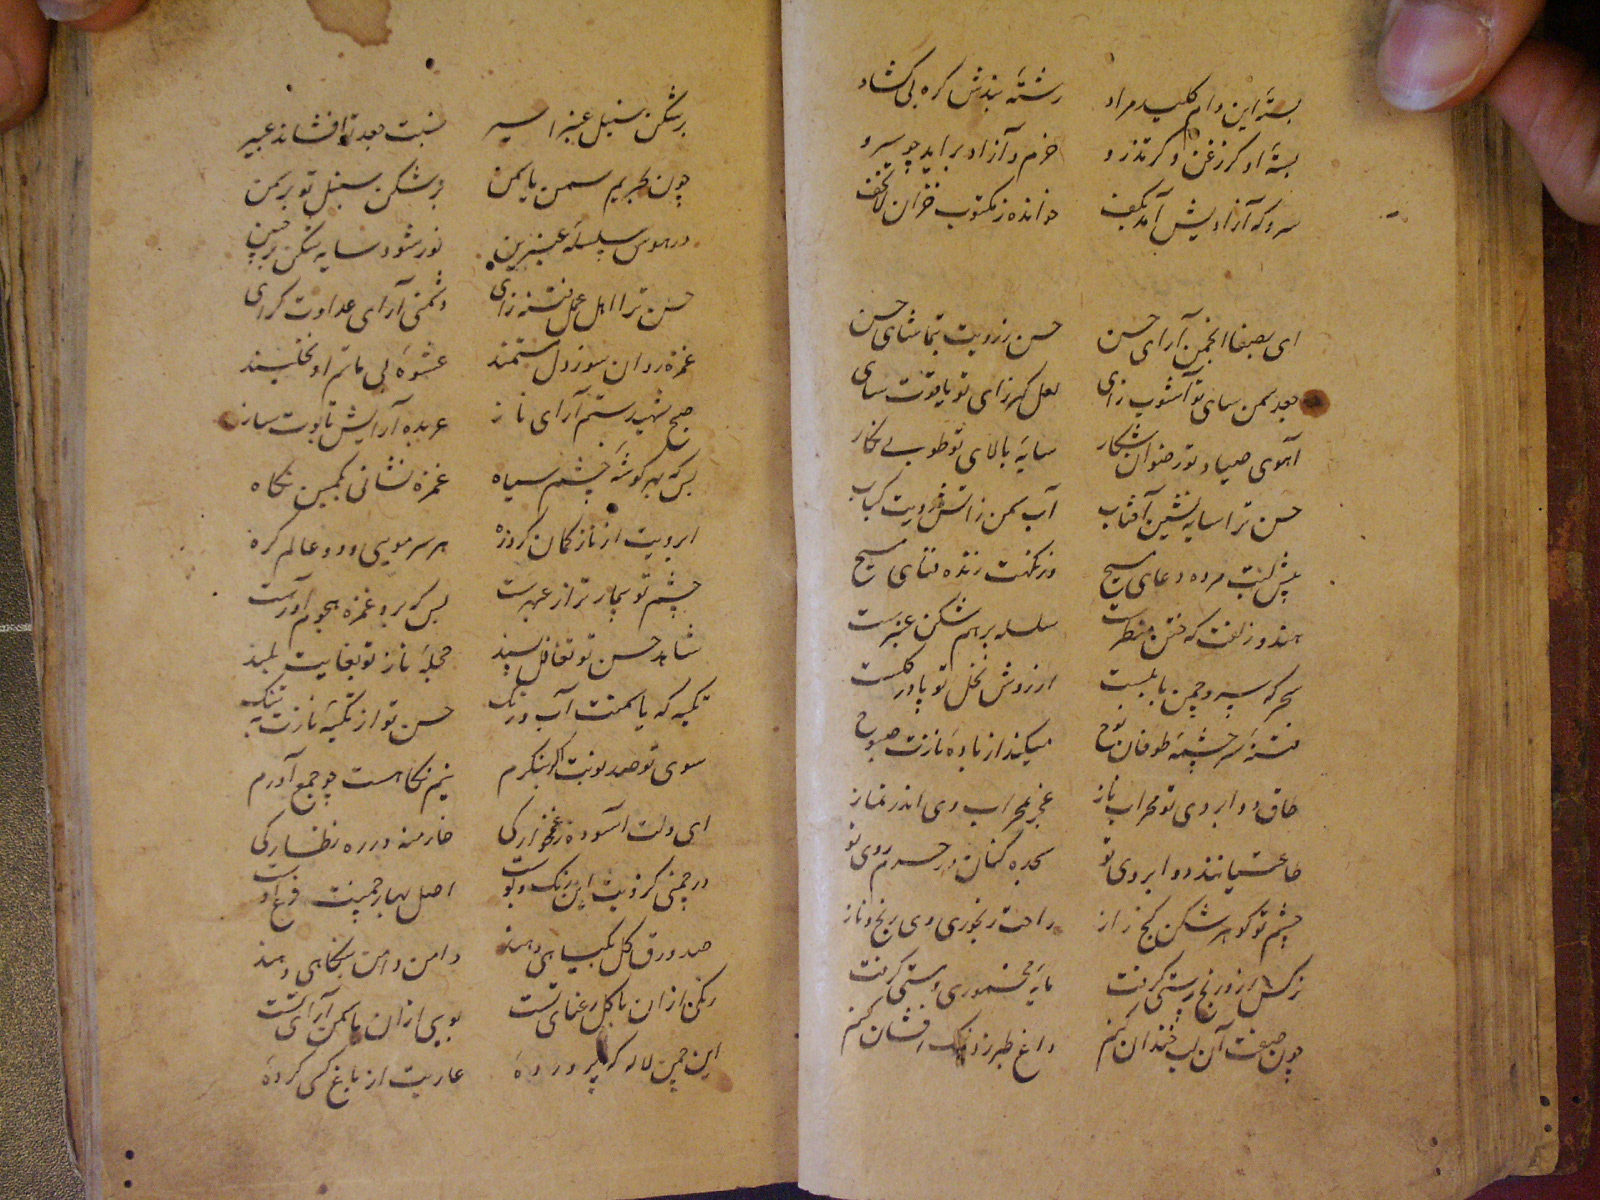 بستهٔ این دام کلید مراد رشتهٔ بندش گره بی گشاد
بستهٔ او گر زغن و گر تذرو خرم و آزاد براید چو سرو
سرو که آزادیش آمد بکف خوانده ز مکتوب خزان لاتخف
ای بصفا انجمن آرای حسن حسن ز رویت بتماشای حسن
جعد سمن سای تو آشوب زای لعل گهر زای تو یاقوت سای
آهوی صیاد تو رضوان شکار سایهٔ بالای تو طوبی نگار
حسن ترا سایه نشین آفتاب آب سمن ز آتش رویت کباب
پیش لبت مرده دعای مسیح وز نگهت زنده فنای مسیح
هندو زلفت که ختن منظرست سلسله بر هم شکن عنبرست
بحر که سرو چمن بابلست از روش نخل تو پا در گلست
فتنهٔ سرچشمهٔ طوفان نوح میکند از بادهٔ نازت صبوح
طاق دو ابروی تو محراب ناز عجز بمحراب وی اندر نماز
طاعتیانند دو ابروی تو سجده کنان در حرم روی تو
چشم تو گوهر شکن گنج راز راحت رنجوری وی رنج و ناز
نرگس از و رنج پرستی گرفت مایهٔ مخموری و مستی گرفت
چون صفت آن لب خندان کنم داغ طبرزد نمک افشان کنم
بر شکن سنبل عنبر اسیر نسبت جعد تو افشاند عبیر
چون نگریم سمن یاسمن بر شکن سنبل تو بر سمن
در هوس سلسلهٔ عنبرین نور شود سایه شکن بر جبین
حسن ترا اهل عمل فتنه زای دشمنی آرای عداوت گرای
غمزه روان سوز دل مستمند عشوهٔ بی ماتم او نخلبند
صبح شهید ستم آرای ناز عربده آرایش تابوت ساز
بس که بهر گوشهٔ چشم سیاه غمزه نشانی بکمین نگاه
ابرویت از ناز کمان کرد زه هر سر مویی و دو عالم گره
چشم تو بیمارتر از عبهرست بس که برو غمزه هجوم آورست
شاهد حسن تو تغافل پسند حجلهٔ ناز تو بغایت بلند
تکیه که یاسمنت آب و رنگ حسن تو از تکیهٔ نازت بتنگ
سوی تو صد نوبت اگر بنگرم نیم نگاهست چو جمع آورم
ای دلت آسوده ز غمخوارگی خار منه در ره نظارگی
در چمنی کز ویت این رنگ و بوست اصل بهار چمنت فرع اوست
صد ورق گل بگیاهی دهند دامن دامن بنگاهی دهند
رنگی از ان با گل رعنای تست بویی از ان با سمن آرای تست
این چمن لاله که پروردهٔ عاریت از باغ کسی کردهٔ